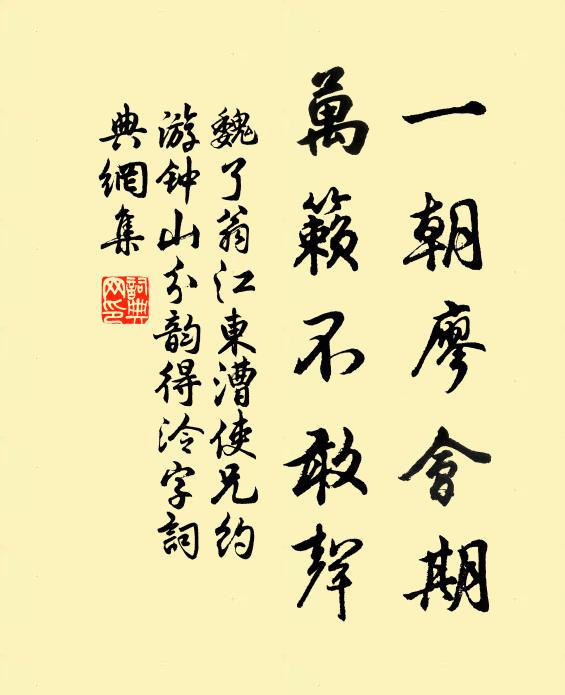 一朝廖會期
萬籟不敢聲
魏了翁江東漕使兄約
游钟山分韵得泠字詞
典網集
詞典網印